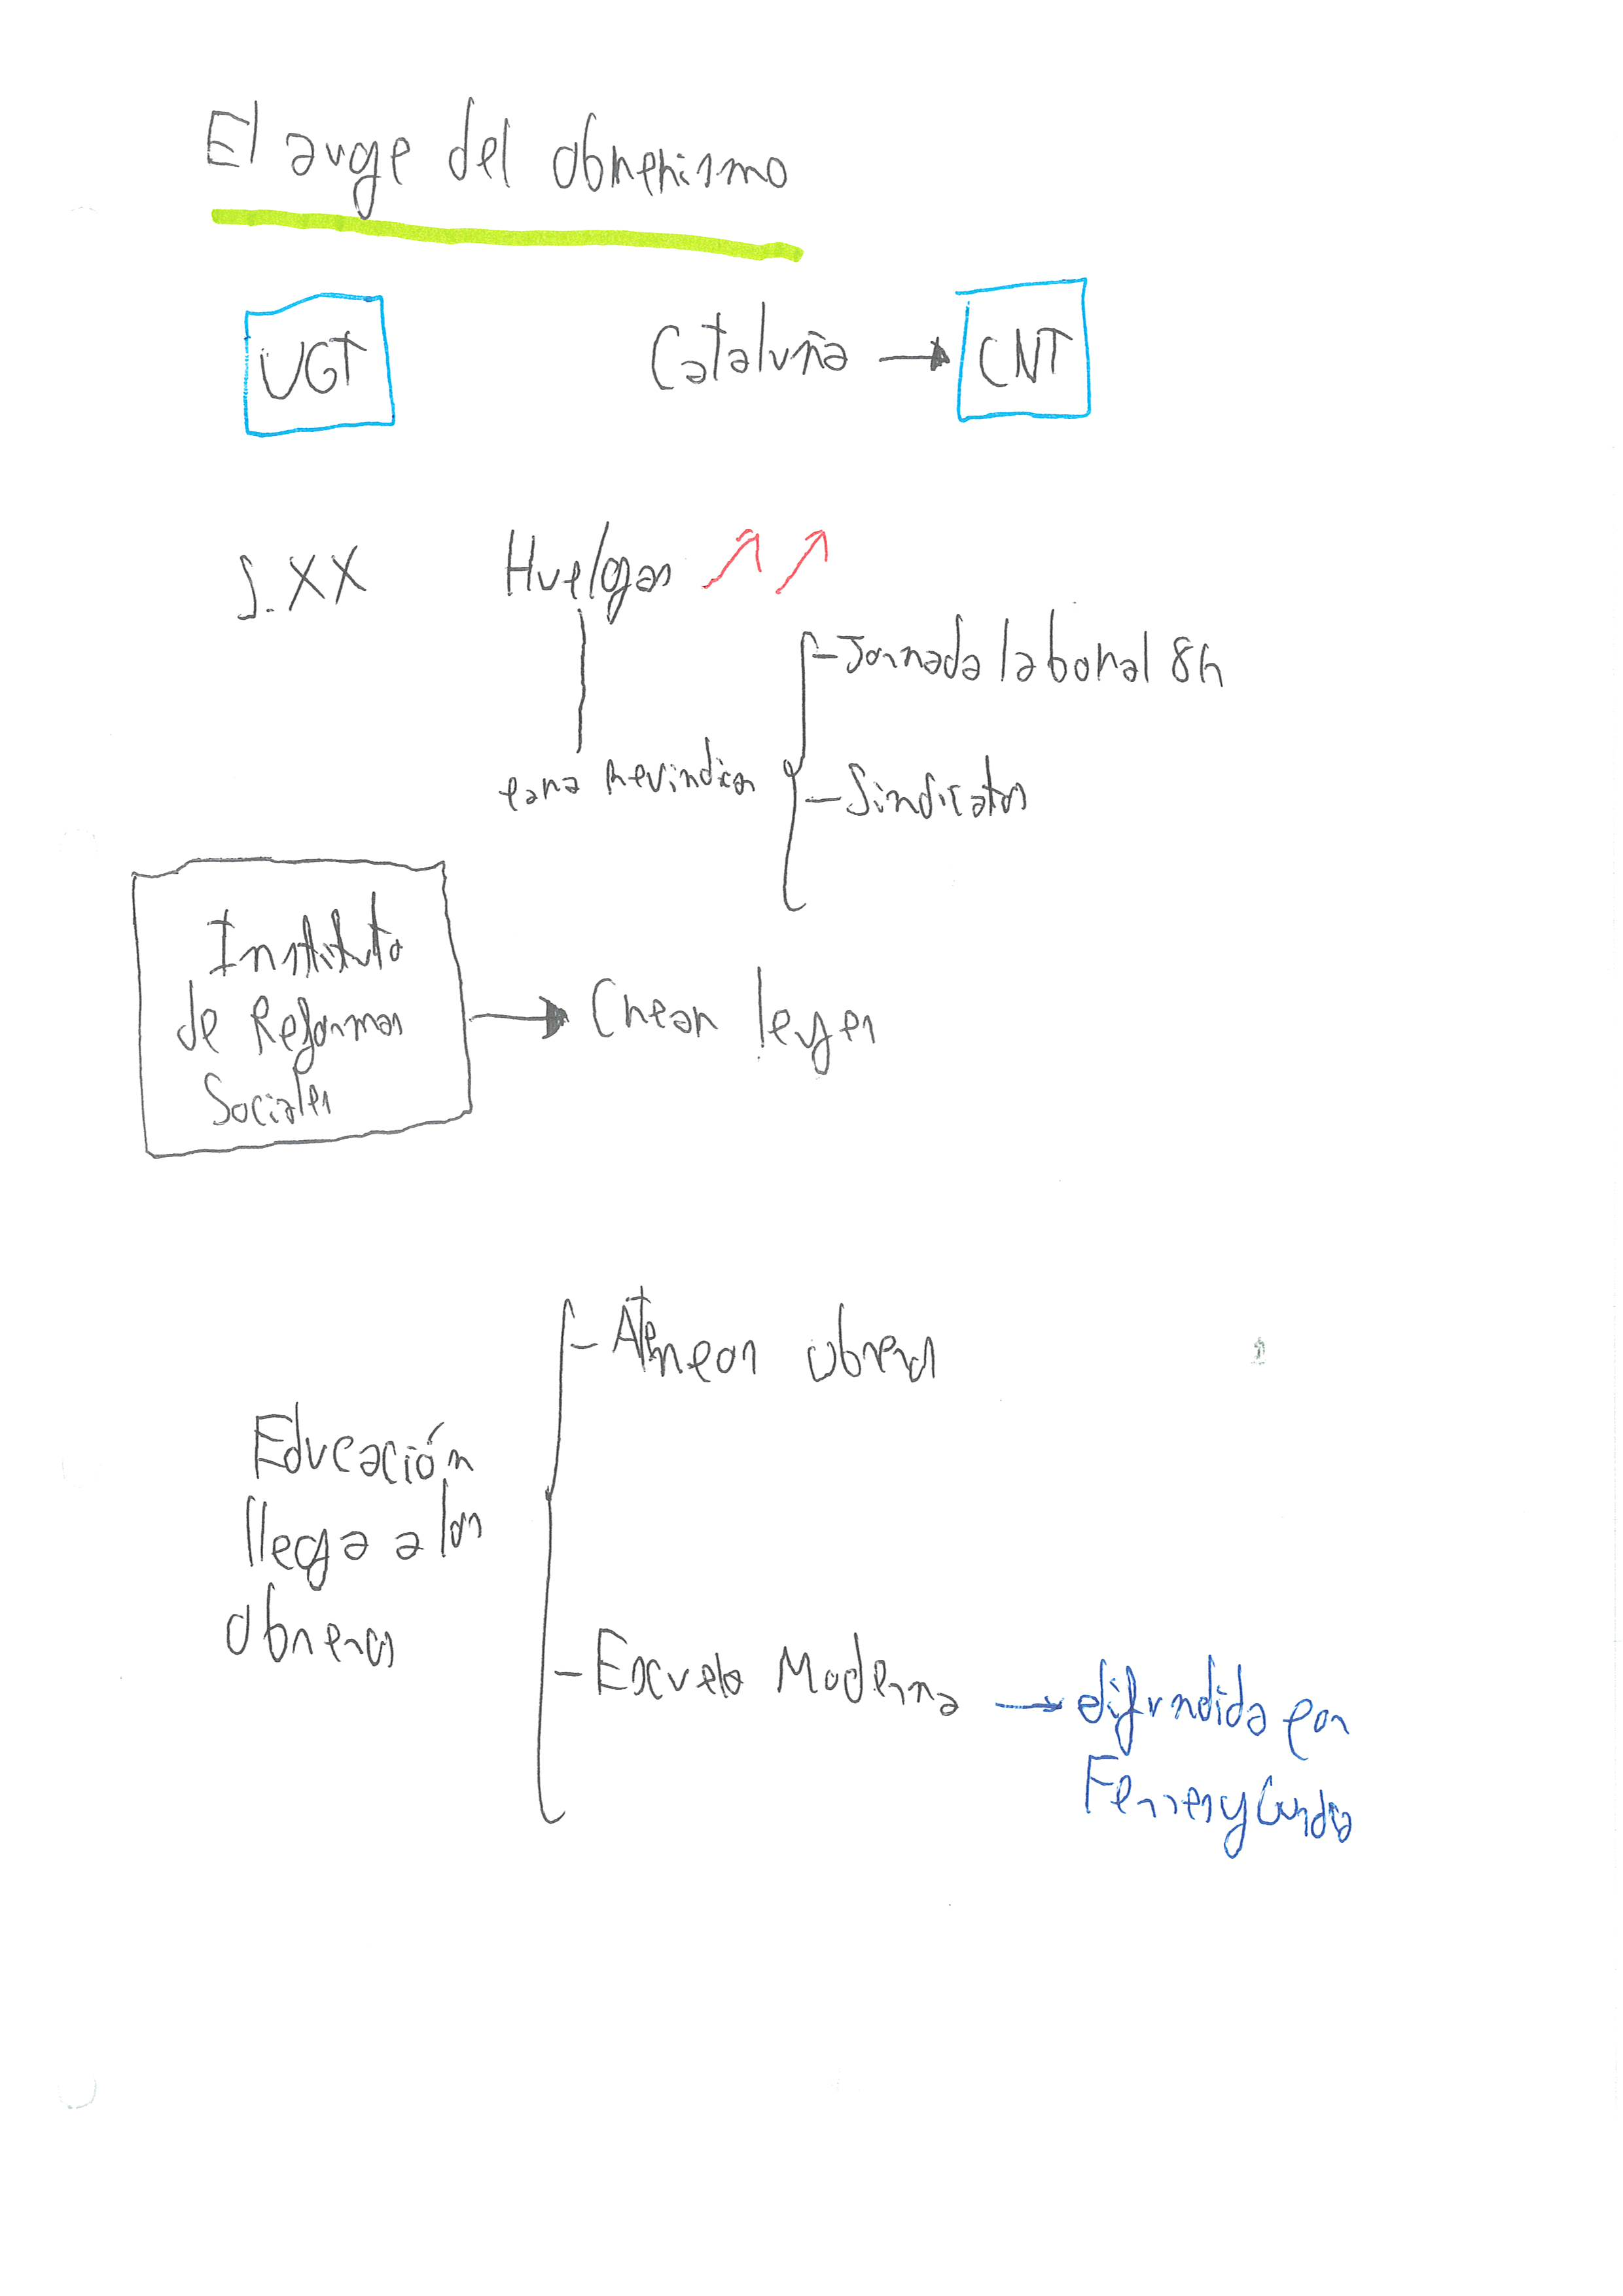 El auge del obrerismo
UGT
Cataluña → CNT
S.XX
Huelgas ↗ ↗
para revindicar
- Jornada laboral 8h
- Sindicatos
Instituto
de Reformas
Sociales
→ Crean leyes
Educación
llega a los
obreros
- Ateneos obreros
- Escuela Moderna → difundida por
Ferrer y Guardia